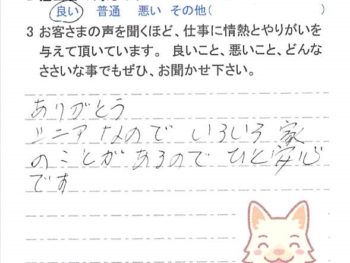 良い 普通 悪い その他(
3 お客さまの声を聞くほど、仕事に情熱とやりがいを
与えて頂いています。 良いこと、悪いこと、どんな
ささいな事でもぜひ、お聞かせ下さい。
ありがとう
シニアなので いろいろ 家
のことが あるので ひと安心
です